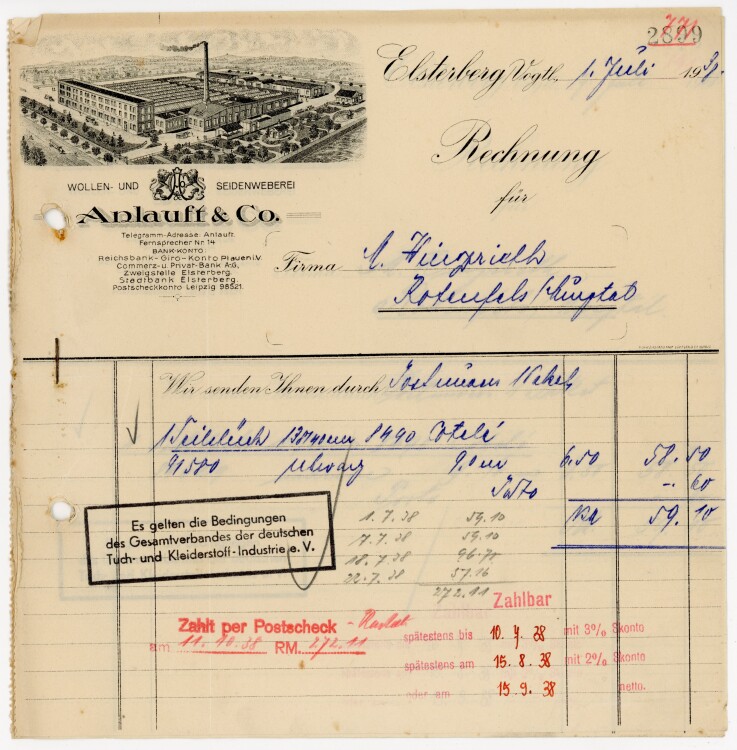 2899
Elsterberg Vogtl. 1. Juli 1938.
Rechnung
für
WOLLEN- UND SEIDENWEBEREI
Anlauft & Co.
Telegramm-Adresse: Anlauft.
Fernsprecher Nr. 14
BANK-KONTO:
Reichsbank-Giro-Konto Plauen i.V.
Commerz-u. Privat-Bank A:G.,
Zweigstelle Elsterberg.
Stadtbank Elsterberg.
Postscheckkonto Leipzig 98521.
Firma
Rotenfels / Murgtal
Wir senden Ihnen durch
1 138/40 cm 8490
41500 schwarz 9,0 m 6.50 58.50
Porto -. 60
59.10
Es gelten die Bedingungen
des Gesamtverbandes der deutschen
Tuch- und Kleiderstoff-Industrie e. V.
1.7.38 59.10
7.7.38 59.10
18.7.38
22.7.38 57.16
272.11
Zahlbar
Zahlt per Postscheck
am 11.10.38 RM. 272.11
spätestens bis 10.9.38 mit 3% Skonto
spätestens am 15.8.38 mit 2% Skonto
oder am 15.9.38 netto.